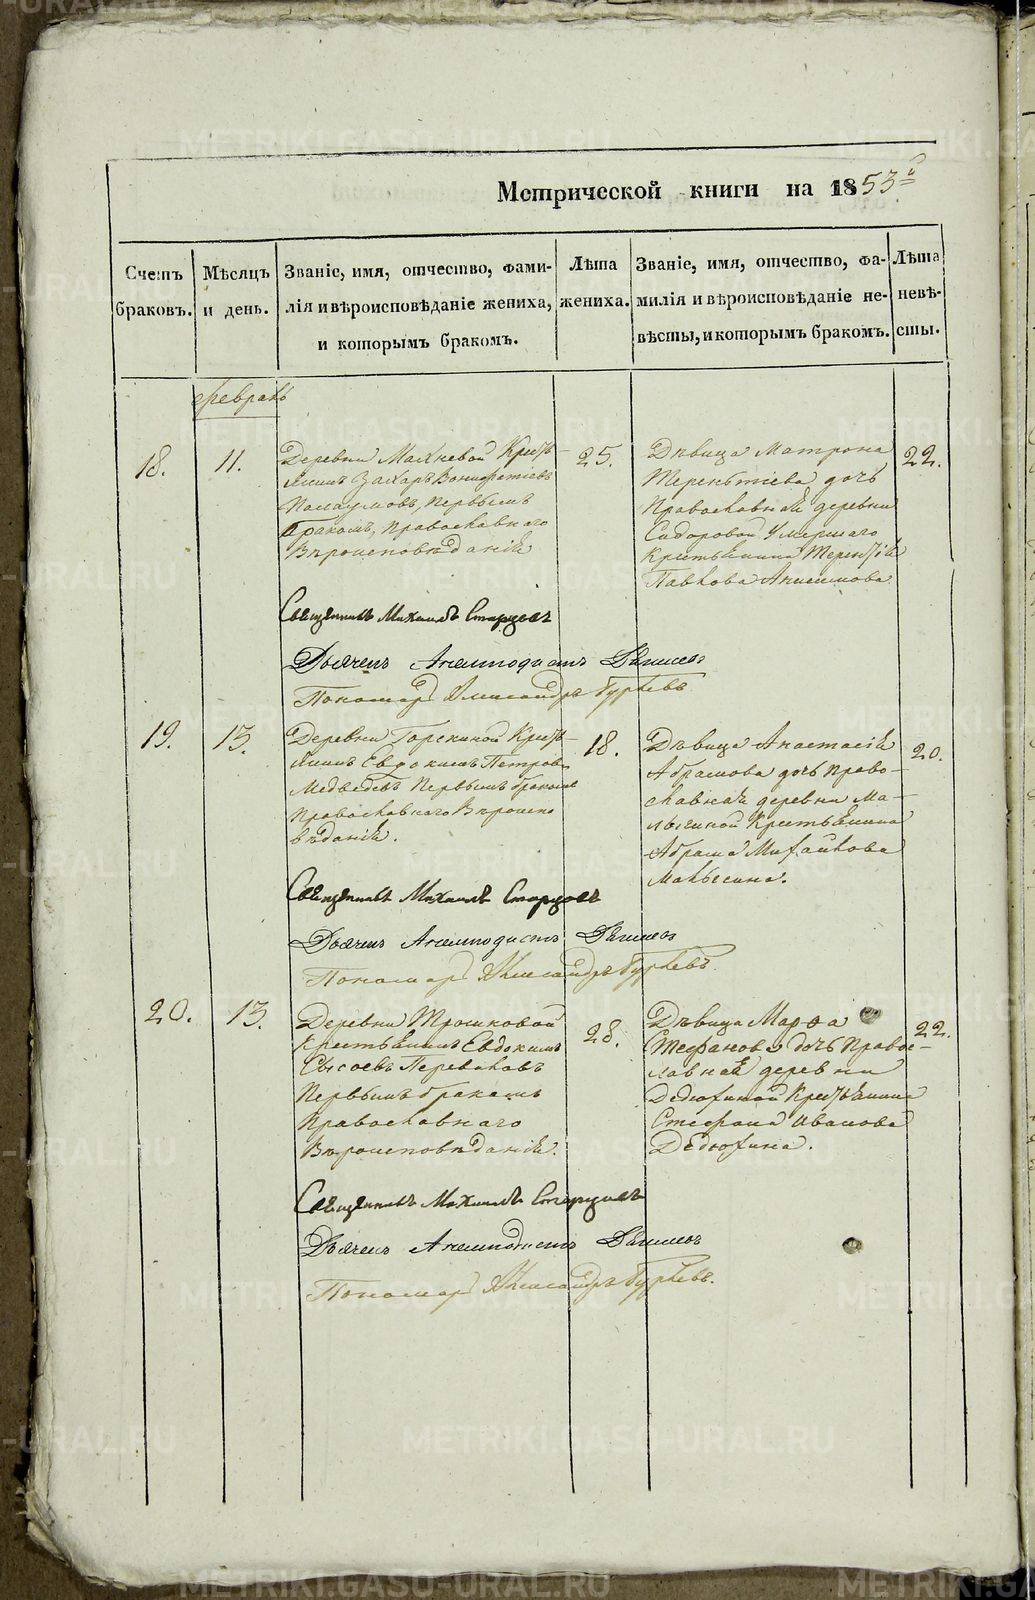 Метрической книги на 1853й
Счетъ браковъ.
Мѣсяцъ и день.
Званіе, имя, отчество, фами-
лія и вѣроисповѣданіе жениха,
и которымъ бракомъ.
Лѣта
жениха.
Званіе, имя, отчество, фа-
милія и вѣроисповѣданіе не-
вѣсты, и которымъ бракомъ.
Лѣта
невѣ-
сты.
Февраль
18. 11.
Деревни Махневой Кресть-
янинъ Захаръ Вонифатіевъ
Первымъ
бракомъ, Православнаго
Вѣроисповѣданія
25.
Дѣвица Матрона
Терентіева дочь
Православная деревни
Сидоровой Умершаго
Крестьянина Терентія
Павлова Анисимова
22.
Священникъ Михаилъ Старцовъ
Дьячекъ Анемподистъ
Пономарь Александръ Гурьевъ
19. 13.
Деревни Горскиной Кресть-
янинъ Евдокимъ Петровъ
Медведевъ Первымъ бракомъ
Православнаго Вѣроиспо
вѣданія.
18.
Дѣвица Анастасія
Абрамова дочь Право-
славная деревни Ма-
льгиной Крестьянина
Абрама Михайлова
20.
Священникъ Михаилъ Старцовъ
Дьячекъ Анемподистъ
Пономарь Александръ Гурьевъ.
20. 13.
Деревни Трошковой
Крестьянинъ Евдокимъ
Сысоевъ Переваловъ
Первымъ бракомъ
Православнаго
Вѣроисповѣданія.
28.
Дѣвица Марѳа
Стефанова дочь Правос-
лавная деревни
Дедюхиной Крестьянина
Стефана Иванова
Дедюхина.
22.
Священникъ Михаилъ Старцовъ
Дьячекъ Анемподистъ
Пономарь Александръ Гурьевъ.
METRIKI.GASO-URAL.RU